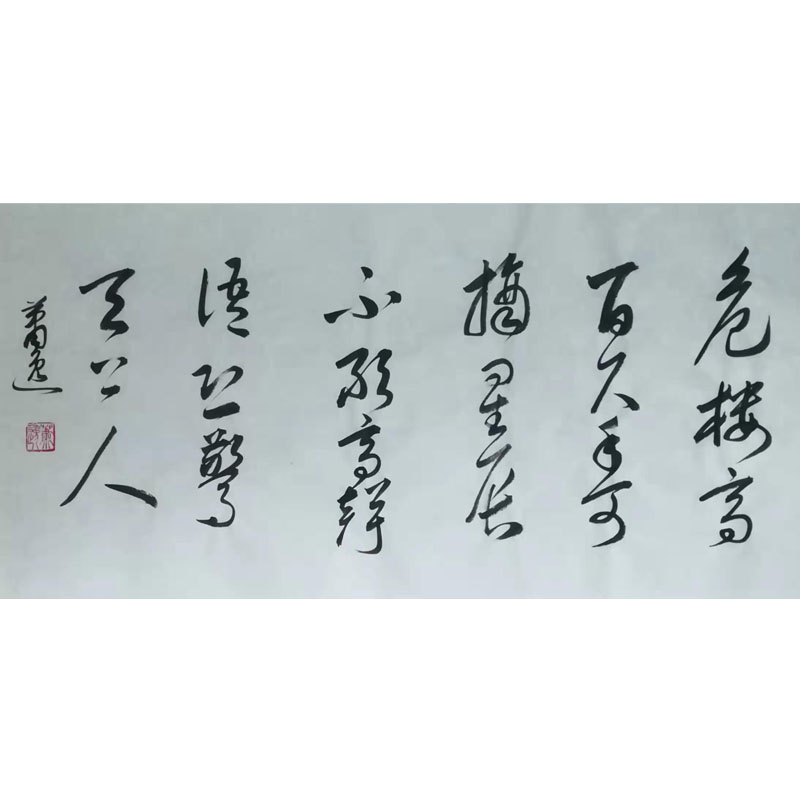 危楼高
百尺手可
摘星辰
不敢高聲
語恐驚
天上人
蕭